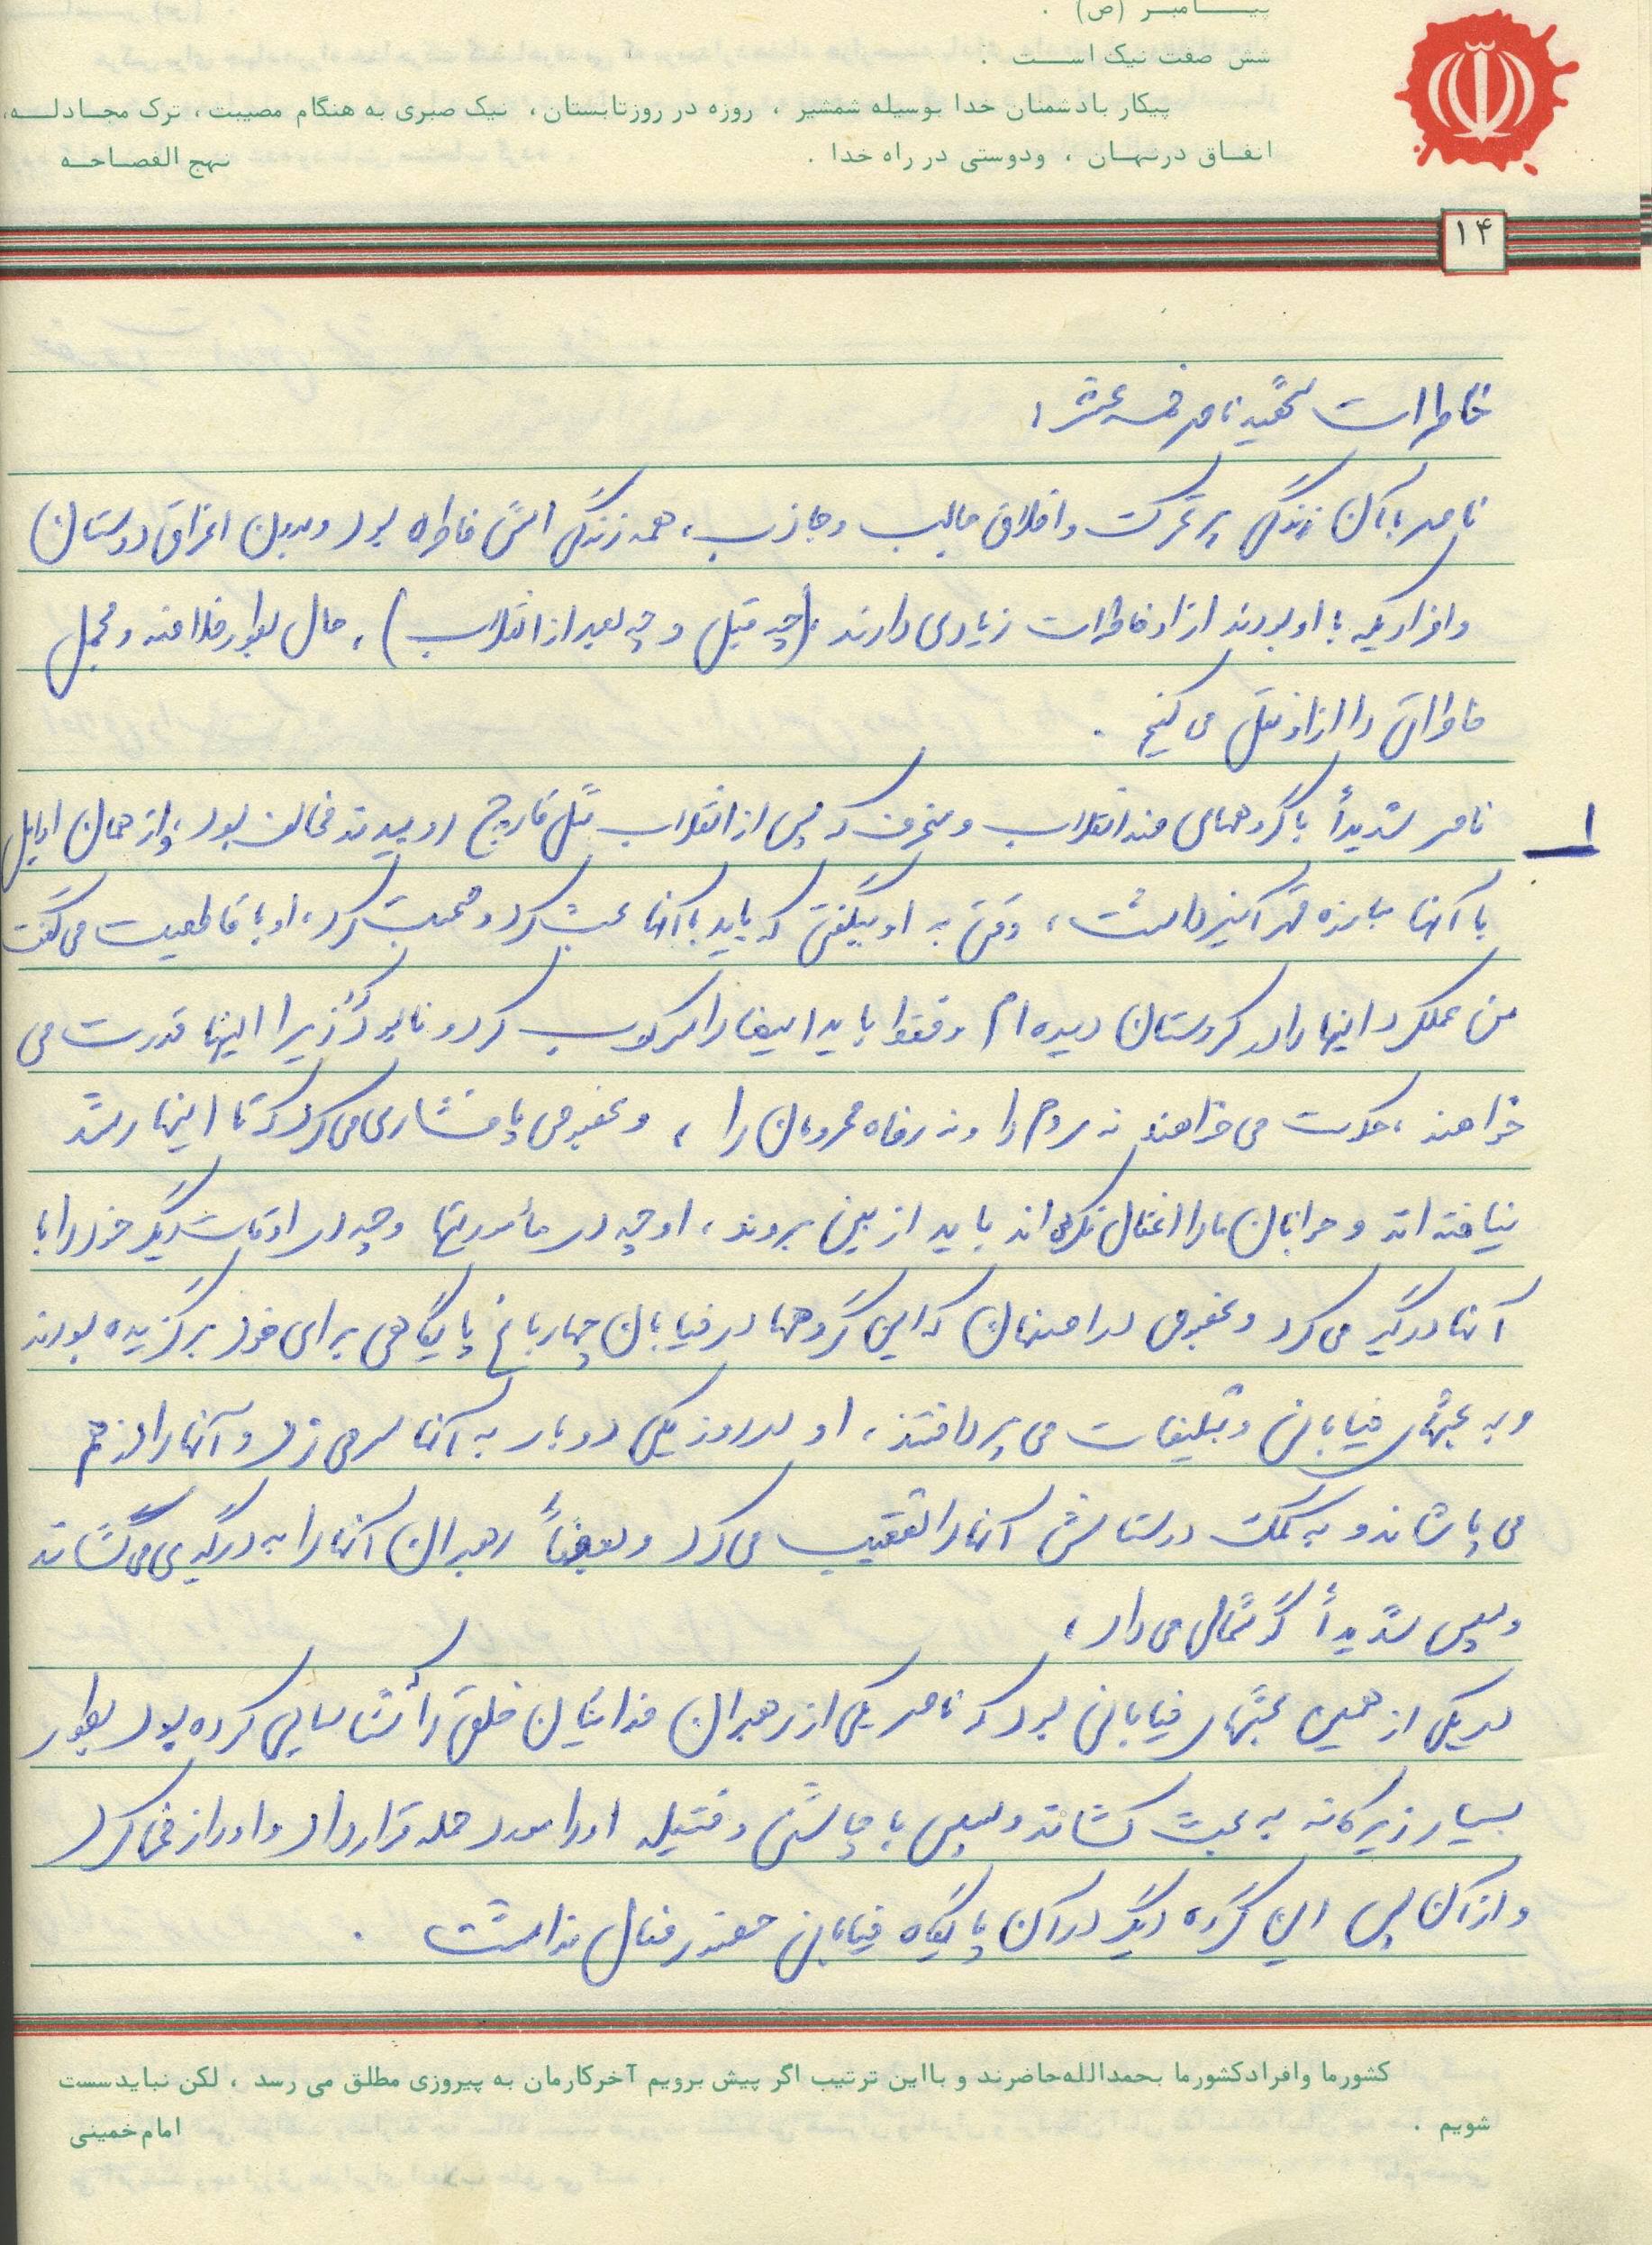 پیـــامبـر (ص) .
شش صفت نیک اســت .
پیکار بادشمنان خدا بوسیله شمشیر ، روزه در روزتابستان، نیک صبری به هنگام مصیبت، ترک مجـادلــه،
انفــاق درنهــان ، ودوستی در راه خدا .
نهج الفصـاحــه
۱۴
خاطرات شهید ناصر
ناصر با آن زندگی پر تحرک و اخلاق جالب و جاذب، همه زندگی اش خاطره بود و بدون اغراق دوستان
و افرادیکه با او بودند از او خاطرات زیادی دارند (چه قبل و چه بعد از انقلاب)، حال بطور خلاصه و مجمل
خاطراتی را از او نقل می کنیم .
۱
ناصر شدیداً با گروههای ضد انقلاب و منحرف که پس از انقلاب مثل قارچ روییدند مخالف بود، و از همان اوایل
با آنها مبارزه قهرآمیز داشت، وقتی به او میگفتی که باید با آنها بحث کرد و صحبت کرد، او با قاطعیت می گفت
من عملکرد اینها را در کردستان دیده ام و فقط باید اینها را سرکوب کرد و نابود کرد زیرا اینها قدرت می
خواهند، حکومت می خواهند نه مردم را و نه رفاه محرومان را ، و بخصوص پافشاری می کرد که تا اینها رشد
نیافته اند و جوانان ما را اغفال نکرده اند باید از بین بروند، او چه در مأموریتها و چه در اوقات دیگر خود را با
آنها درگیر می کرد و بخصوص در اصفهان که این گروهها در خیابان چهارباغ پایگاهی برای خود برگزیده بودند
و به بحثهای خیابانی و تبلیغات می پرداختند، او در روز یکی دو بار به آنها سر می زد و آنها را از هم
می پاشاند و به کمک دوستانش آنها را تعقیب می کرد و بعضاً رهبران آنها را به درگیری می کشاند
و سپس شدیداً گوشمالی می داد،
در یکی از همین بحثهای خیابانی بود که ناصر یکی از رهبران فدائیان خلق را شناسایی کرده بود بطور
بسیار زیرکانه به بحث کشاند و سپس با چاشنی و فتیله او را مورد حمله قرار داد و او را زخمی کرد
و از آن پس این گروه دیگر در آن پایگاه خیابانی حضور فعال نداشت .
کشورما وافرادکشورما بحمدالله‌حاضرند و بااین ترتیب اگر پیش برویم آخرکارمان به پیروزی مطلق می رسد ، لکن نبایدسست
شویم .
امام‌خمینی